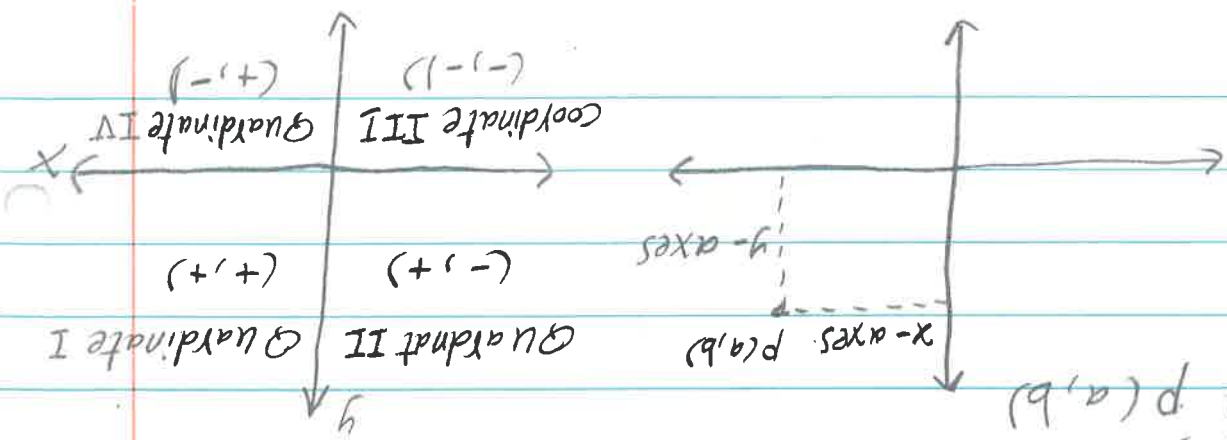 P(a,b)
x-axes P(a,b)
y-axes
y
Quardnat II Quardinate I
(-,+) (+,+)
X
Coordinate III Quardinate IV
(-,-) (+,-)